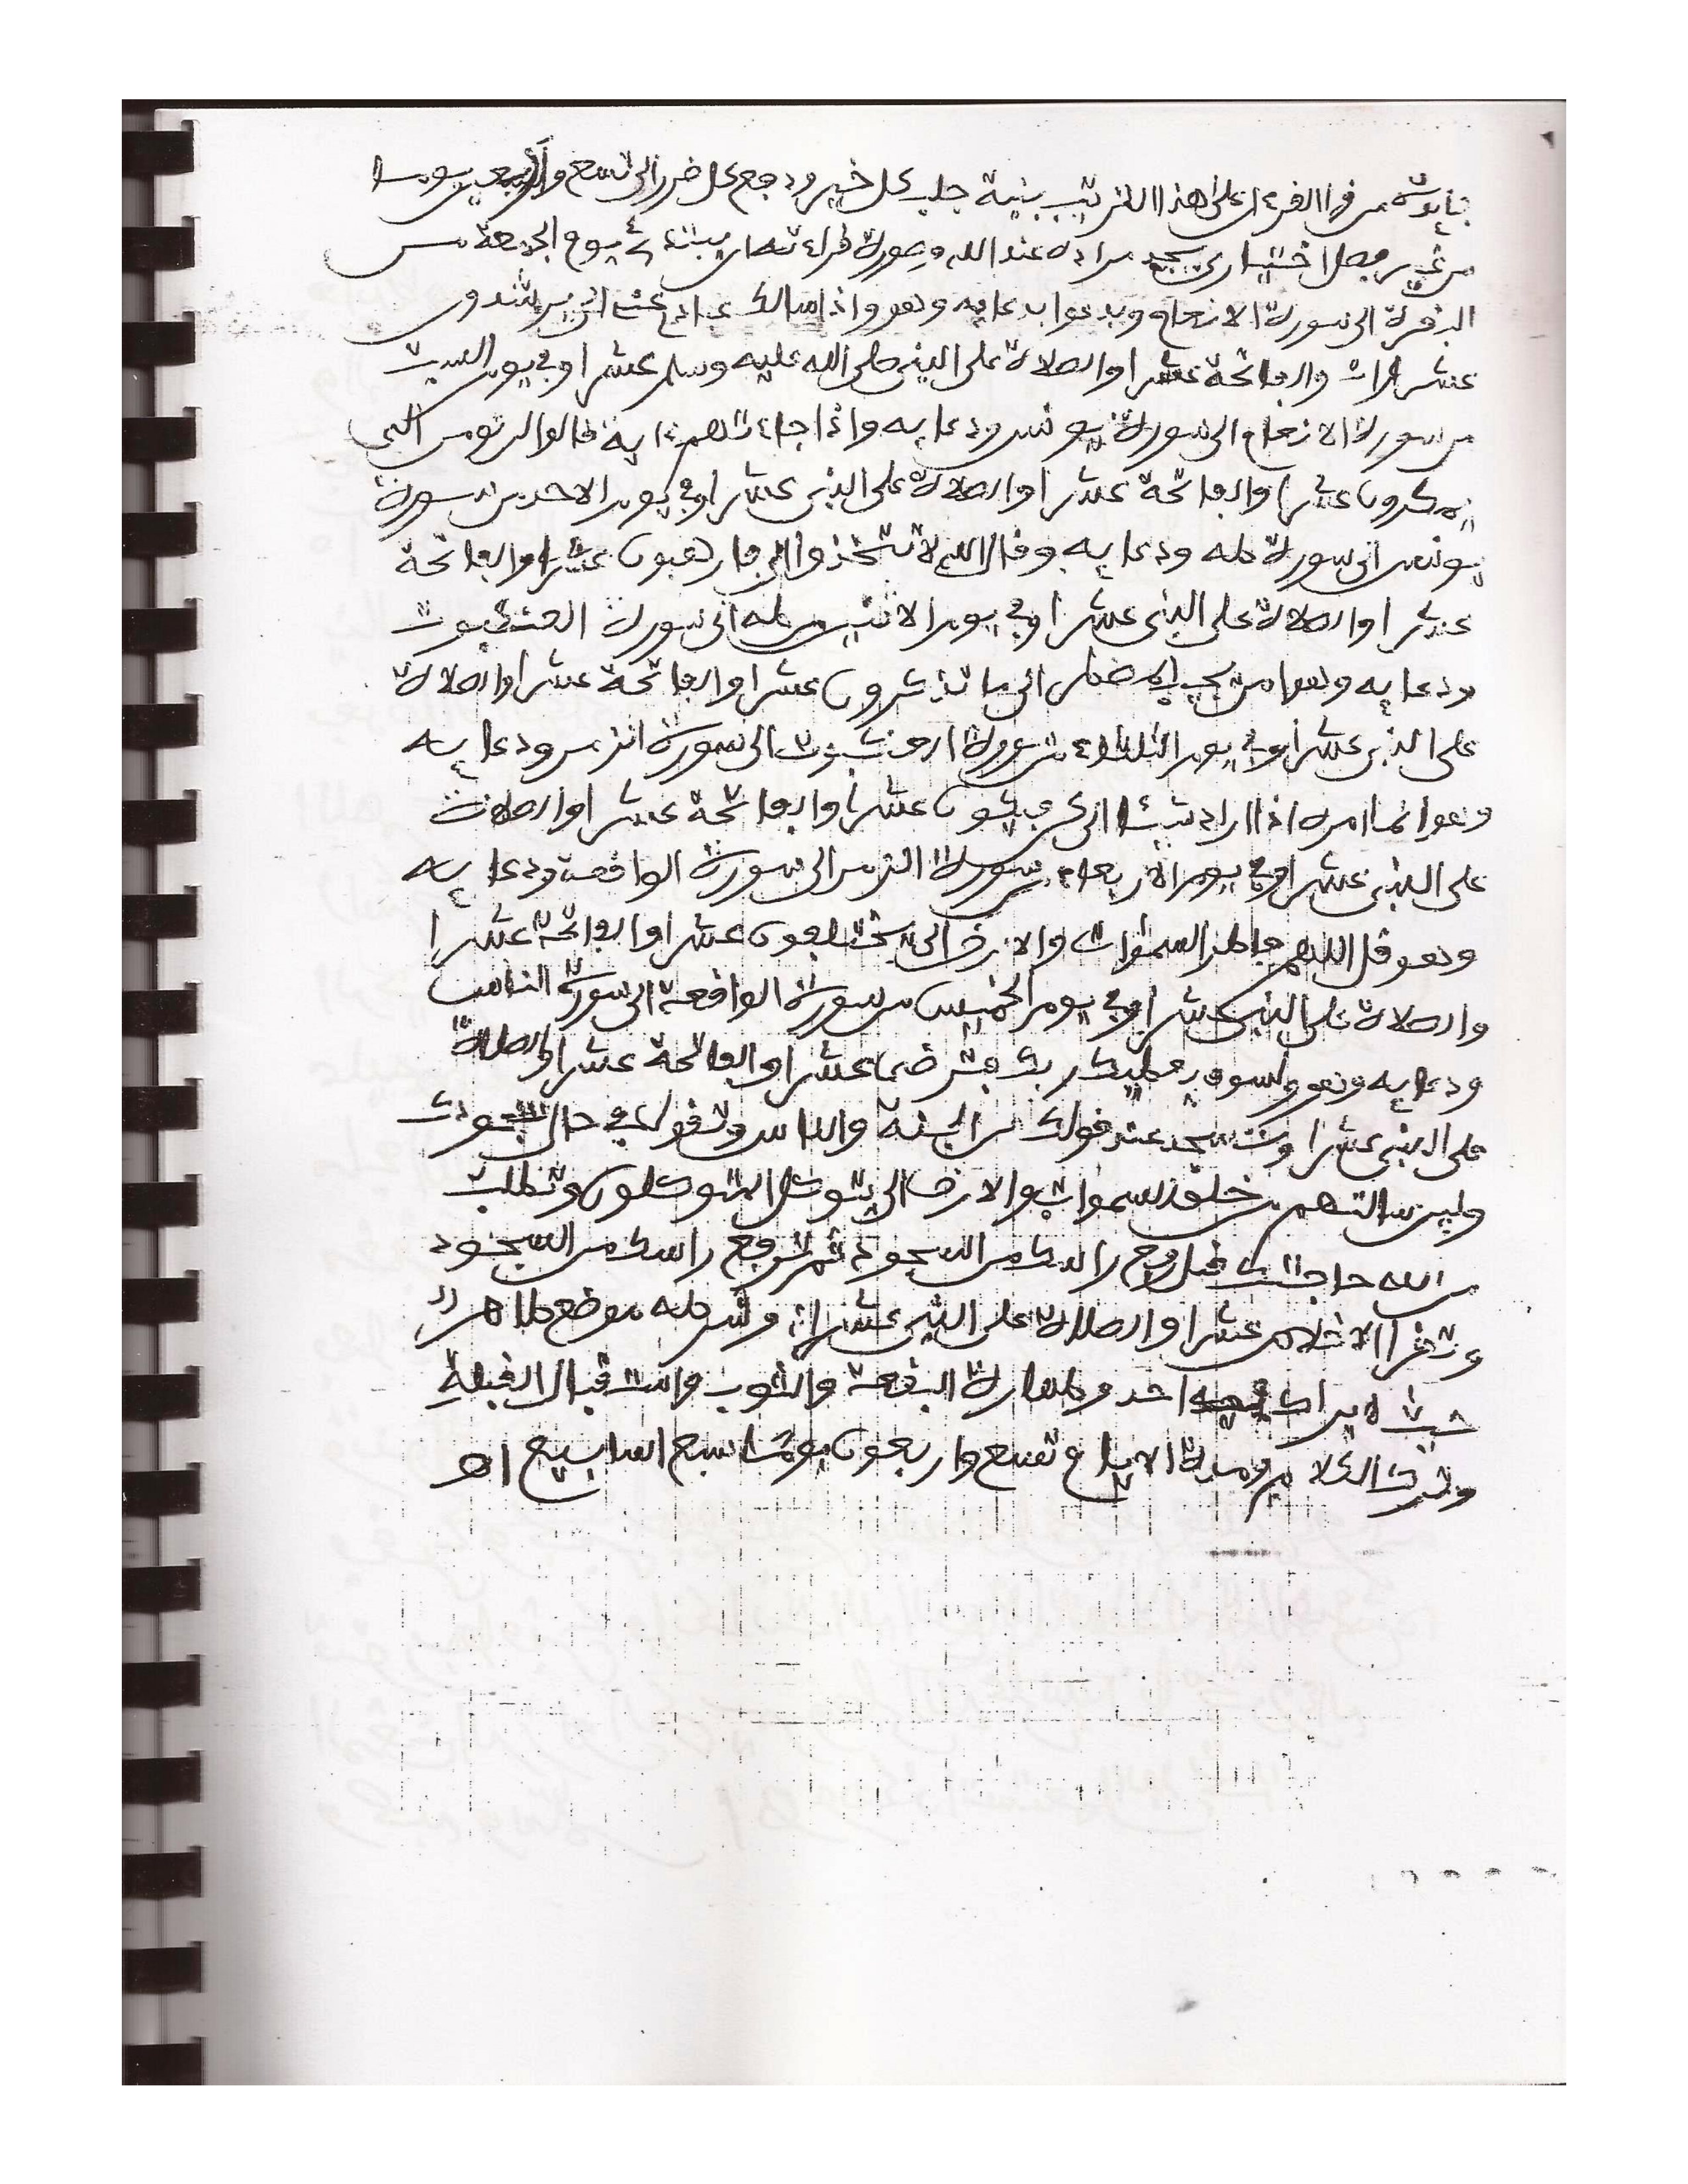 فايدة من قرا القرءان على هذا الترتيب بنية جلب كل خير ودفع كل ضر الى تسع واربعين يوما
من غير فصل اختياري يجد مراده عند الله وصورة قراءته ان يبتدئ يوم الجمعة من
البقرة الى سورة الانعام ويدعوا بدعايه وهو واذا سالك عبادي عني الى يرشدون
عشر مرات والفاتحة عشرا والصلاة على النبي صلى الله عليه وسلم عشرا وفي يوم السبت
من سورة الانعام الى سورة يونس ودعايه واذا جاءتهم ءاية قالوا لن نومن الى
يمكرون عشرا والفاتحة عشرا والصلاة على النبي عشرا وفي يوم الاحد من سورة
يونس الى سورة طه ودعايه وقال الله لا تتخذوا الى فارهبون عشرا والفاتحة
عشرا والصلاة على النبي عشرا وفي يوم الاثنين من طه الى سورة العنكبوت
ودعايه وهو امن يجيب المضطر الى ما تذكرون عشرا والفاتحة عشرا والصلاة
على النبي عشرا وفي يوم الثلاثاء من سورة العنكبوت الى سورة الزمر ودعايه
وهو انما امره اذا اراد شيئا الى فيكون عشرا والفاتحة عشرا والصلات
على النبي عشرا وفي يوم الاربعاء من سورة الزمر الى سورة الواقعة ودعايه
وهو قل اللهم فاطر السموات والارض الى يختلفون عشرا والفاتحة عشرا
والصلاة على النبي عشرا وفي يوم الخميس من سورة الواقعة الى سورة الناس
ودعايه وهو ولسوف يعطيك ربك فترضى عشرا والفاتحة عشرا والصلاة
على النبي عشرا وتسجد عند قولك من الجنة والناس وتقول في حال سجودك
ولين سالتهم من خلق السموات والارض الى يتوكل المتوكلون وتطلب
من الله حاجتك قبل رفع راسك من السجود ثم ترفع راسك من السجود
وتقرا الاخلاص عشرا والصلاة على النبي عشرا وشرطه موضع طاهر
حيث لا يراك فيه احد وطهارة البقعة والثوب واستقبال القبلة
وترك الكلام ومدة الايام تسع واربعون يوما سبع اسابيع اهـ